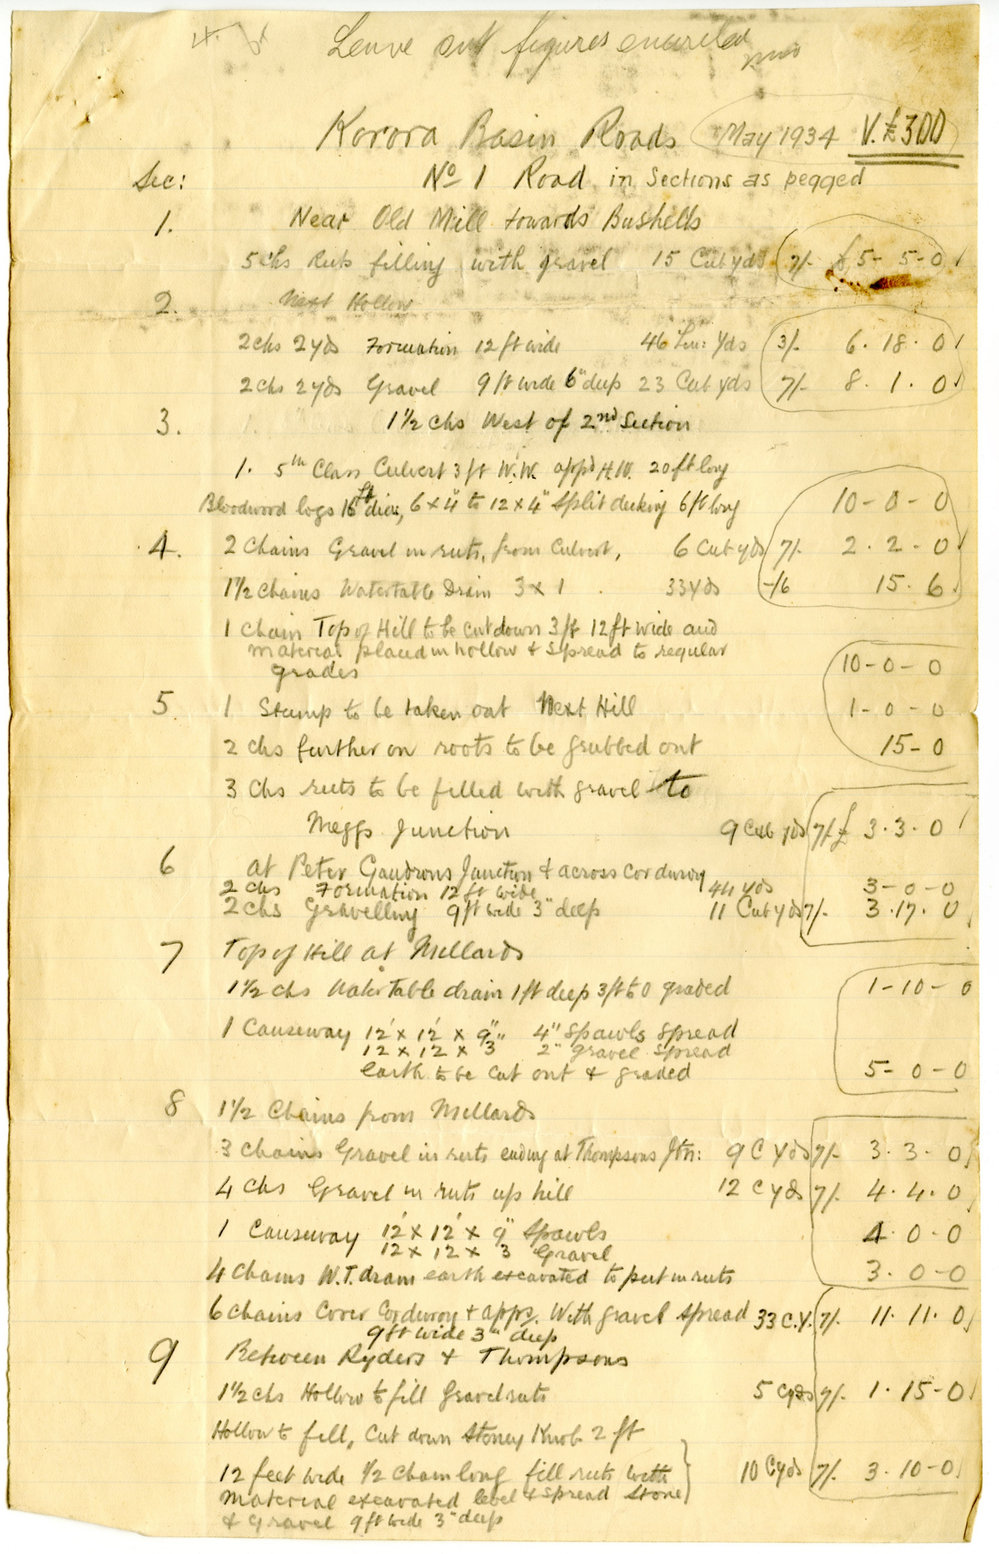 Leave out figures encircled
Korora Basin Roads May 1934 V. £300
Sec: No 1 Road in Sections as pegged
1. Near Old Mill towards Bushells
5 chs Ruts filling with gravel 15 Cub yds 7/- £5-5-0
2. Next Hollow
2 chs 2 yds Formation 12 ft wide 46 Lin: Yds 3/- 6.18.0
2 chs 2 yds Gravel 9 ft wide 6" deep 23 Cub yds 7/- 8.1.0
3. 1½ chs West of 2nd Section
1. 5th Class Culvert 3 ft W.W. appd H.W. 20 ft long
Bloodwood logs 16 ft diar, 6 x 4" to 12 x 4" Split decking 6 ft long 10-0-0
4. 2 Chains Gravel in ruts, from Culvert, 6 Cub yds 7/- 2.2.0
1½ Chains Watertable Drain 3 x 1 33 yds -/6 15.6
1 Chain Top of Hill to be cut down 3 ft 12 ft wide and
material placed in hollow & spread to regular
grades 10-0-0
5. 1 Stump to be taken out Next Hill 1-0-0
2 chs further on roots to be grubbed out 15-0
3 Chs ruts to be filled with gravel to
Meggs Junction 9 Cub yds 7/- £3.3.0
6 at Peter Gaudrons Junction & across corduroy
2 chs Formation 12 ft wide 44 yds 3-0-0
2 chs Gravelling 9 ft wide 3" deep 11 Cub yds 7/- 3.17.0
7 Top of Hill at Millards
1½ chs Water Table drain 1 ft deep 3 ft to 0 graded 1-10-0
1 Causeway 12' x 12' x 9" 4" Spawls spread
12 x 12 x 3 2" gravel spread
Earth to be cut out & graded 5-0-0
8 1½ Chains from Millards
3 Chains Gravel in ruts ending at Thompsons Jtn: 9 C yds 7/- 3.3.0
4 chs Gravel in ruts up hill 12 C yds 7/- 4.4.0
1 Causeway 12' x 12' x 9" Spawls 4.0.0
12 x 12 x 3 Gravel
4 Chains W.T. drain earth excavated to put in ruts 3.0-0
6 Chains Cover Corduroy & apprs. With gravel spread 33 C.Y. 7/- 11.11.0
9 ft wide 3" deep
9 Between Ryders & Thompsons
1½ chs Hollow to fill Gravel ruts 5 Cyds 7/- 1.15-0
Hollow to fill, Cut down Stoney Knob 2 ft
12 feet wide ½ Chain long fill ruts with 10 Cyds 7/- 3.10-0
material excavated level & spread Stone
& Gravel 9 ft wide 3" deep